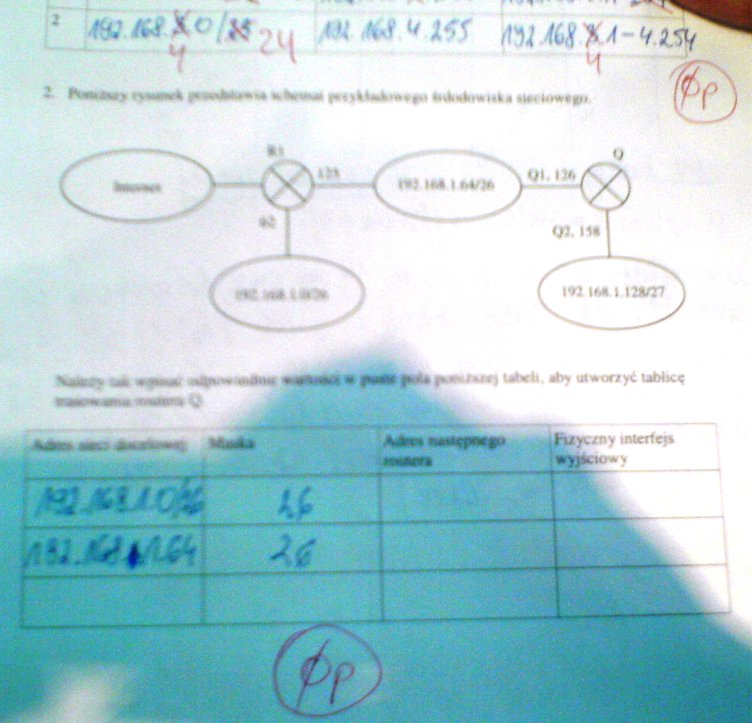 2 192.168.4.0/24 192.168.4.255 192.168.4.1-4.254
φp
2. Poniższy rysunek przedstawia schemat przykładowego śrdodowiska sieciowego.
Internet
R1
125
62
192.168.1.64/26
Q1, 126
Q
Q2, 158
192.168.1.0/26
192.168.1.128/27
Należy tak wpisać odpowiednie wartości w puste pola poniższej tabeli, aby utworzyć tablicę
trasowania routera Q.
Adres sieci docelowej Maska Adres następnego routera Fizyczny interfejs wyjściowy
192.168.1.0/26 26
192.168.1.64 26
φp